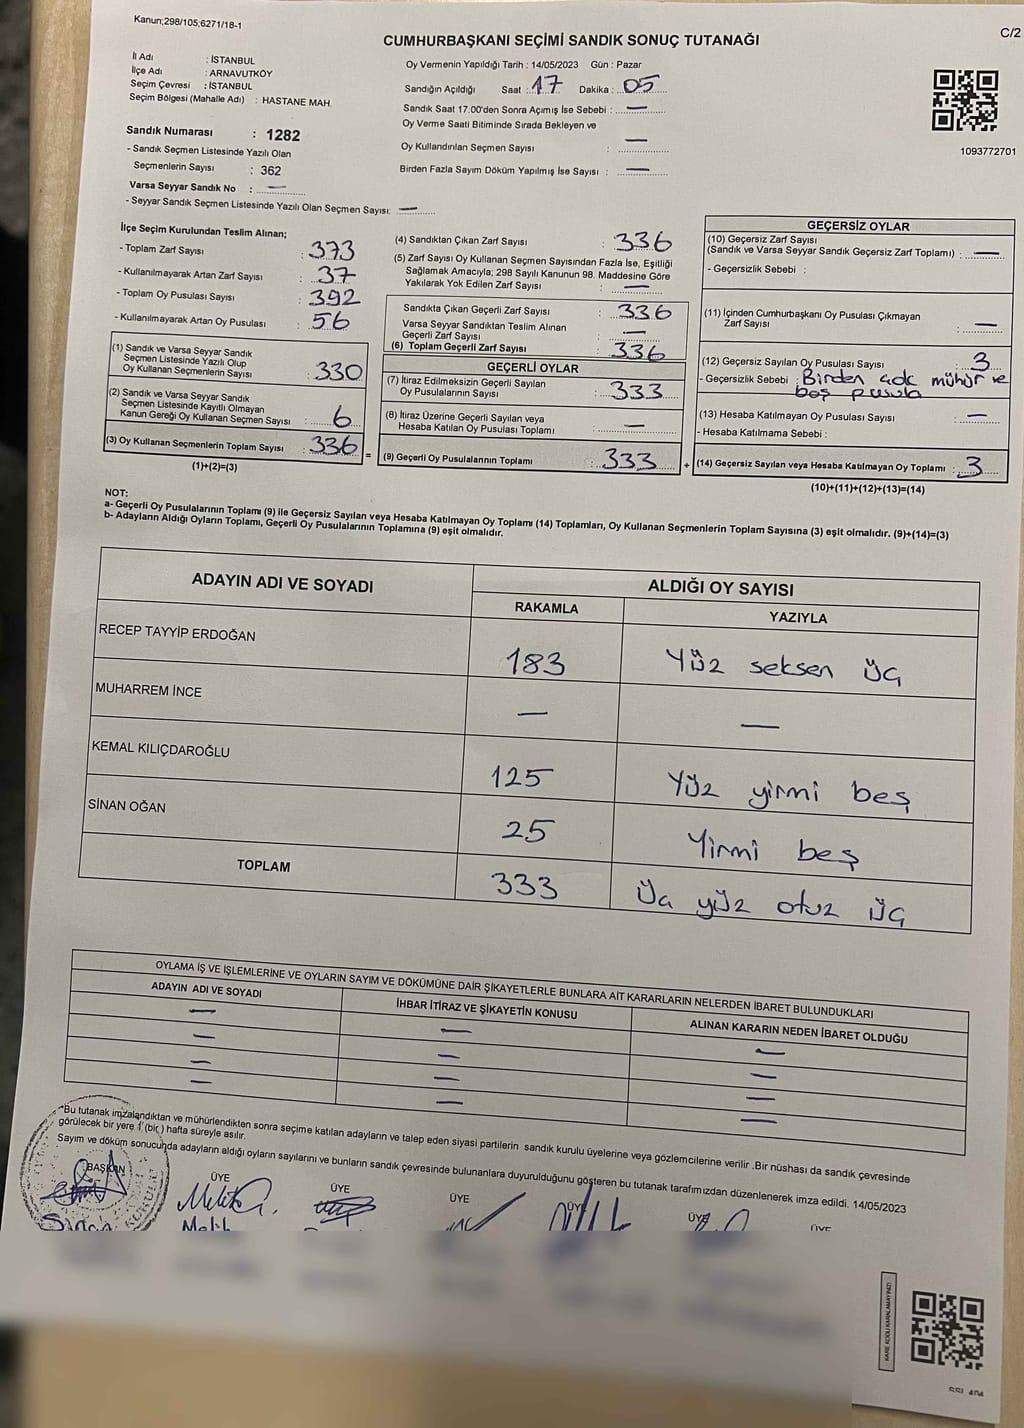 Kanun;298/105;6271/18-1
C/2
CUMHURBAŞKANI SEÇİMİ SANDIK SONUÇ TUTANAĞI
İl Adı : İSTANBUL
İlçe Adı : ARNAVUTKÖY
Seçim Çevresi : İSTANBUL
Seçim Bölgesi (Mahalle Adı) : HASTANE MAH.
Sandık Numarası : 1282
- Sandık Seçmen Listesinde Yazılı Olan
Seçmenlerin Sayısı : 362
Varsa Seyyar Sandık No : —
- Seyyar Sandık Seçmen Listesinde Yazılı Olan Seçmen Sayısı: —
Oy Vermenin Yapıldığı Tarih : 14/05/2023 Gün : Pazar
Sandığın Açıldığı Saat : 17 Dakika : 05
Sandık Saat 17:00'den Sonra Açımış İse Sebebi : —
Oy Verme Saati Bitiminde Sırada Bekleyen ve
Oy Kullandırılan Seçmen Sayısı : —
Birden Fazla Sayım Döküm Yapılmış İse Sayısı : —
1093772701
İlçe Seçim Kurulundan Teslim Alınan;
- Toplam Zarf Sayısı : 373
- Kullanılmayarak Artan Zarf Sayısı : 37
- Toplam Oy Pusulası Sayısı : 392
- Kullanılmayarak Artan Oy Pusulası : 56
(1) Sandık ve Varsa Seyyar Sandık
Seçmen Listesinde Yazılı Olup
Oy Kullanan Seçmenlerin Sayısı : 330
(2) Sandık ve Varsa Seyyar Sandık
Seçmen Listesinde Kayıtlı Olmayan
Kanun Gereği Oy Kullanan Seçmen Sayısı : 6
(3) Oy Kullanan Seçmenlerin Toplam Sayısı : 336
(1)+(2)=(3)
=
(4) Sandıktan Çıkan Zarf Sayısı : 336
(5) Zarf Sayısı Oy Kullanan Seçmen Sayısından Fazla İse, Eşitliği
Sağlamak Amacıyla; 298 Sayılı Kanunun 98. Maddesine Göre
Yakılarak Yok Edilen Zarf Sayısı : —
Sandıkta Çıkan Geçerli Zarf Sayısı : 336
Varsa Seyyar Sandıktan Teslim Alınan
Geçerli Zarf Sayısı : —
(6) Toplam Geçerli Zarf Sayısı : 336
GEÇERLİ OYLAR
(7) İtiraz Edilmeksizin Geçerli Sayılan
Oy Pusulalarının Sayısı : 333
(8) İtiraz Üzerine Geçerli Sayılan veya
Hesaba Katılan Oy Pusulası Toplamı : —
(9) Geçerli Oy Pusulalarının Toplamı : 333
+
GEÇERSİZ OYLAR
(10) Geçersiz Zarf Sayısı
(Sandık ve Varsa Seyyar Sandık Geçersiz Zarf Toplamı) : —
- Geçersizlik Sebebi :
(11) İçinden Cumhurbaşkanı Oy Pusulası Çıkmayan
Zarf Sayısı : —
(12) Geçersiz Sayılan Oy Pusulası Sayısı : 3
- Geçersizlik Sebebi : Birden çok mühür ve
boş pusula
(13) Hesaba Katılmayan Oy Pusulası Sayısı : —
- Hesaba Katılmama Sebebi :
(14) Geçersiz Sayılan veya Hesaba Katılmayan Oy Toplamı : 3
(10)+(11)+(12)+(13)=(14)
NOT:
a- Geçerli Oy Pusulalarının Toplamı (9) ile Geçersiz Sayılan veya Hesaba Katılmayan Oy Toplamı (14) Toplamları, Oy Kullanan Seçmenlerin Toplam Sayısına (3) eşit olmalıdır. (9)+(14)=(3)
b- Adayların Aldığı Oyların Toplamı, Geçerli Oy Pusulalarının Toplamına (9) eşit olmalıdır.
ADAYIN ADI VE SOYADI
ALDIĞI OY SAYISI
RAKAMLA YAZIYLA
RECEP TAYYİP ERDOĞAN 183 Yüz seksen üç
MUHARREM İNCE — —
KEMAL KILIÇDAROĞLU 125 Yüz yirmi beş
SİNAN OĞAN 25 Yirmi beş
TOPLAM 333 Üç yüz otuz üç
OYLAMA İŞ VE İŞLEMLERİNE VE OYLARIN SAYIM VE DÖKÜMÜNE DAİR ŞİKAYETLERLE BUNLARA AİT KARARLARIN NELERDEN İBARET BULUNDUKLARI
ADAYIN ADI VE SOYADI İHBAR İTİRAZ VE ŞİKAYETİN KONUSU ALINAN KARARIN NEDEN İBARET OLDUĞU
— — —
— — —
— — —
— — —
"Bu tutanak imzalandıktan ve mühürlendikten sonra seçime katılan adayların ve talep eden siyasi partilerin sandık kurulu üyelerine veya gözlemcilerine verilir .Bir nüshası da sandık çevresinde
görülecek bir yere 1 (bir ) hafta süreyle asılır.
Sayım ve döküm sonucunda adayların aldığı oyların sayılarını ve bunların sandık çevresinde bulunanlara duyurulduğunu gösteren bu tutanak tarafımızdan düzenlenerek imza edildi. 14/05/2023
BAŞKAN ÜYE ÜYE ÜYE ÜYE ÜYE ÜYE
KURULU
KARE KODU KARALAMAYINIZ!